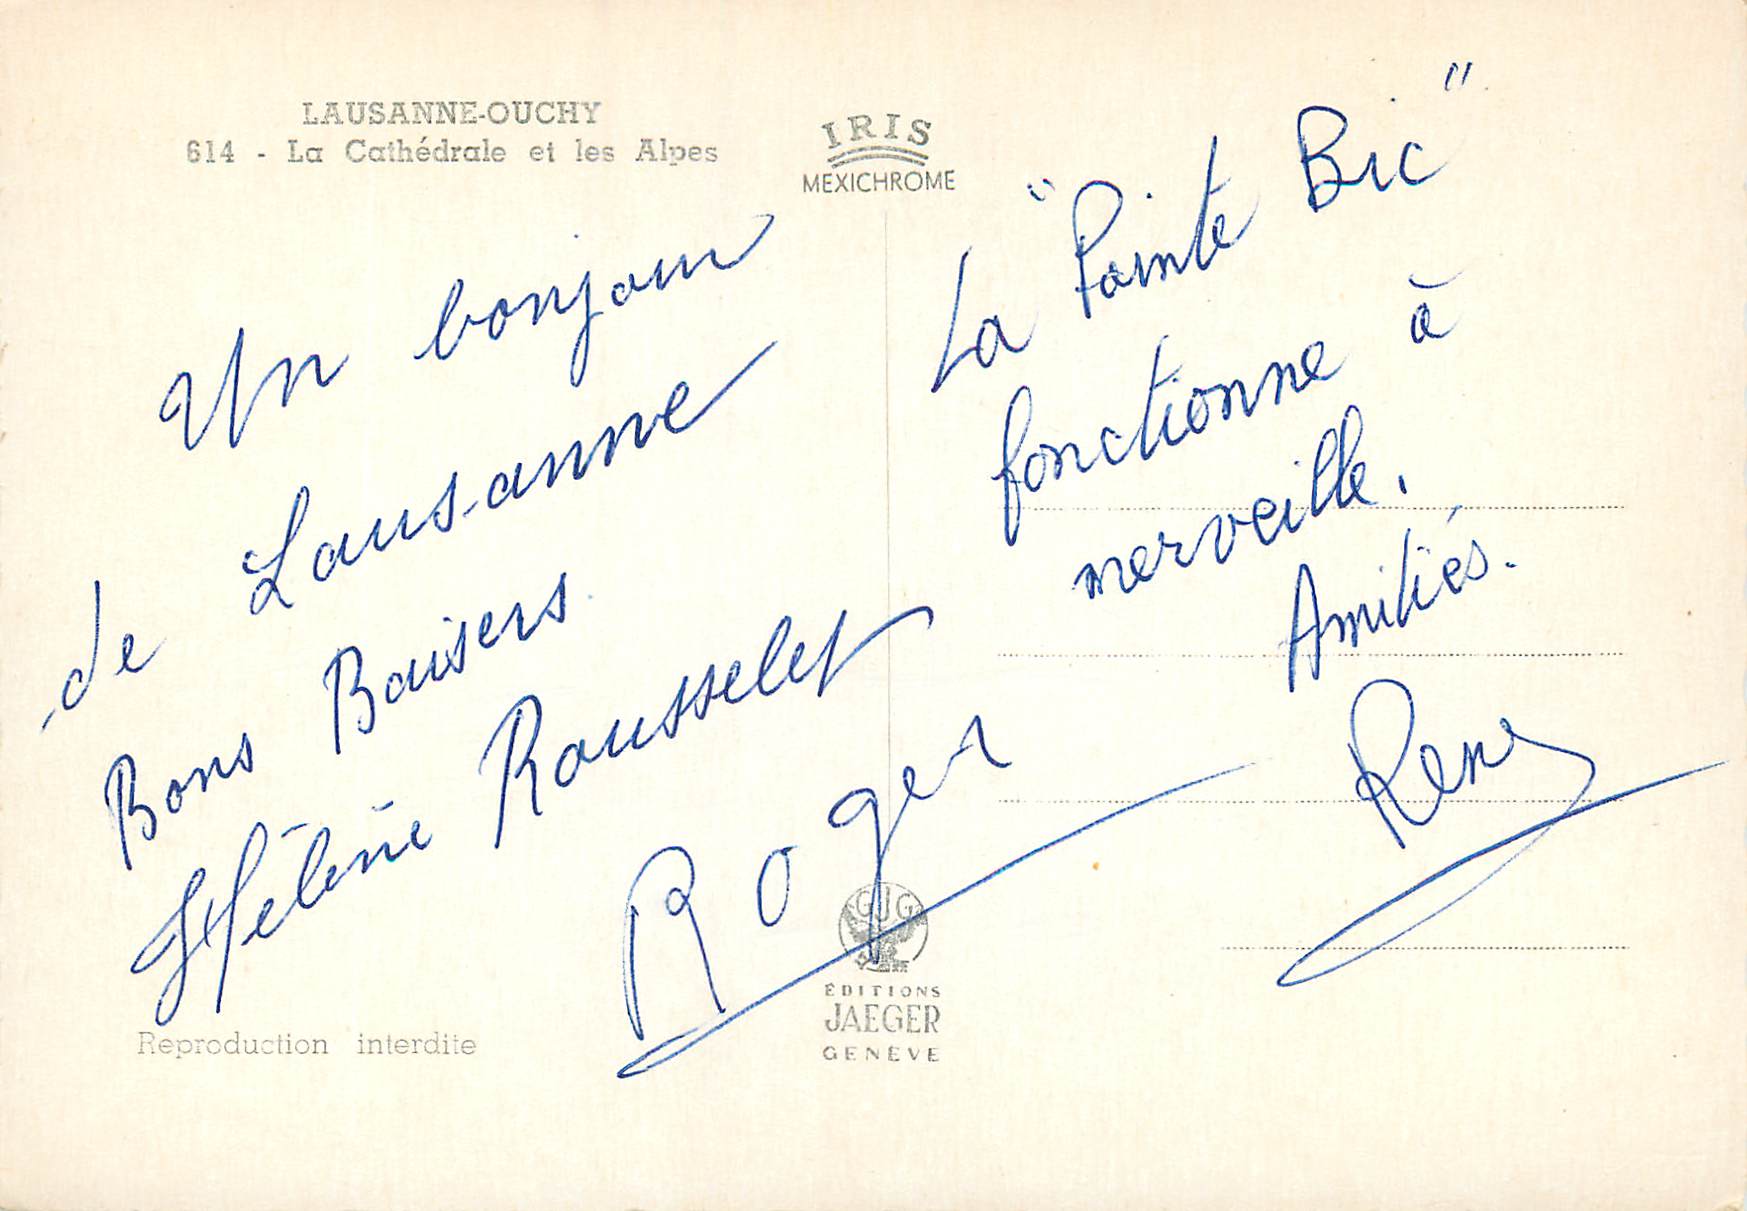 LAUSANNE-OUCHY
614 - La Cathédrale et les Alpes
IRIS
MEXICHROME
Un bonjour
de Lausanne
Bons Baisers
Hélène Rousselet
Roger
La "Pointe Bic"
fonctionne à
merveille.
Amitiés.
René
GJG
ÉDITIONS
JAEGER
GENÈVE
Reproduction interdite